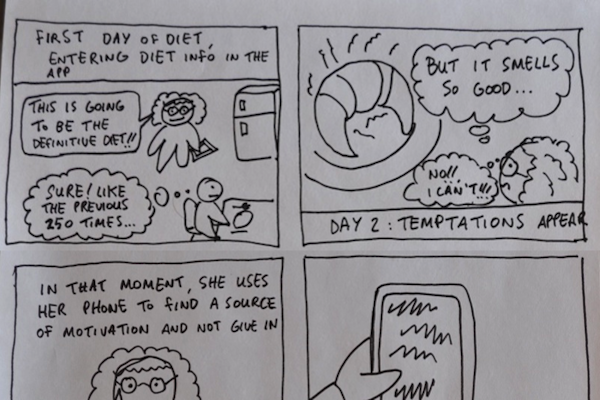 FIRST DAY OF DIET,
ENTERING DIET INFO IN THE
APP
THIS IS GOING
TO BE THE
DEFINITIVE DIET!!
SURE! LIKE
THE PREVIOUS
250 TIMES...
BUT IT SMELLS
SO GOOD...
NO!!
I CAN'T!!!
DAY 2 : TEMPTATIONS APPEAR
IN THAT MOMENT, SHE USES
HER PHONE TO FIND A SOURCE
OF MOTIVATION AND NOT GIVE IN